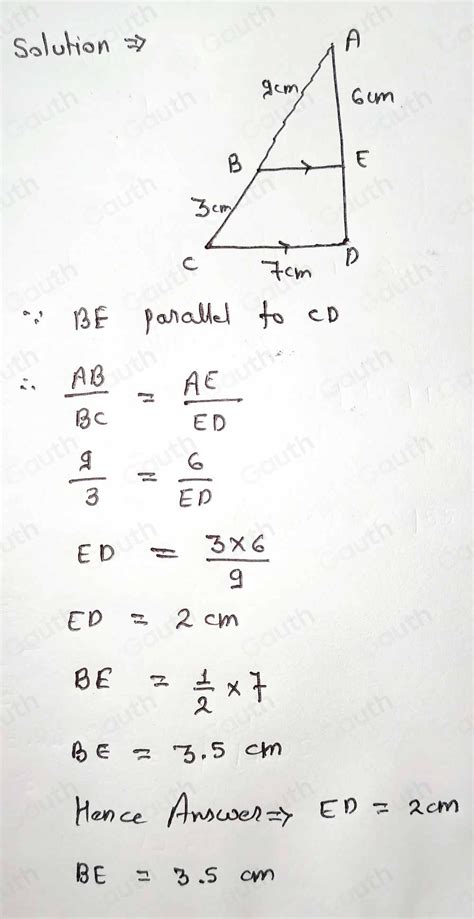 Solution ⇒
A
9cm
6cm
B
E
3cm
C
7cm
D
∵ BE parallel to CD
∴ AB/BC = AE/ED
9/3 = 6/ED
ED = 3×6/9
ED = 2 cm
BE = 1/2 × 7
BE = 3.5 cm
Hence Answer⇒ ED = 2cm
BE = 3.5 cm
Gauth